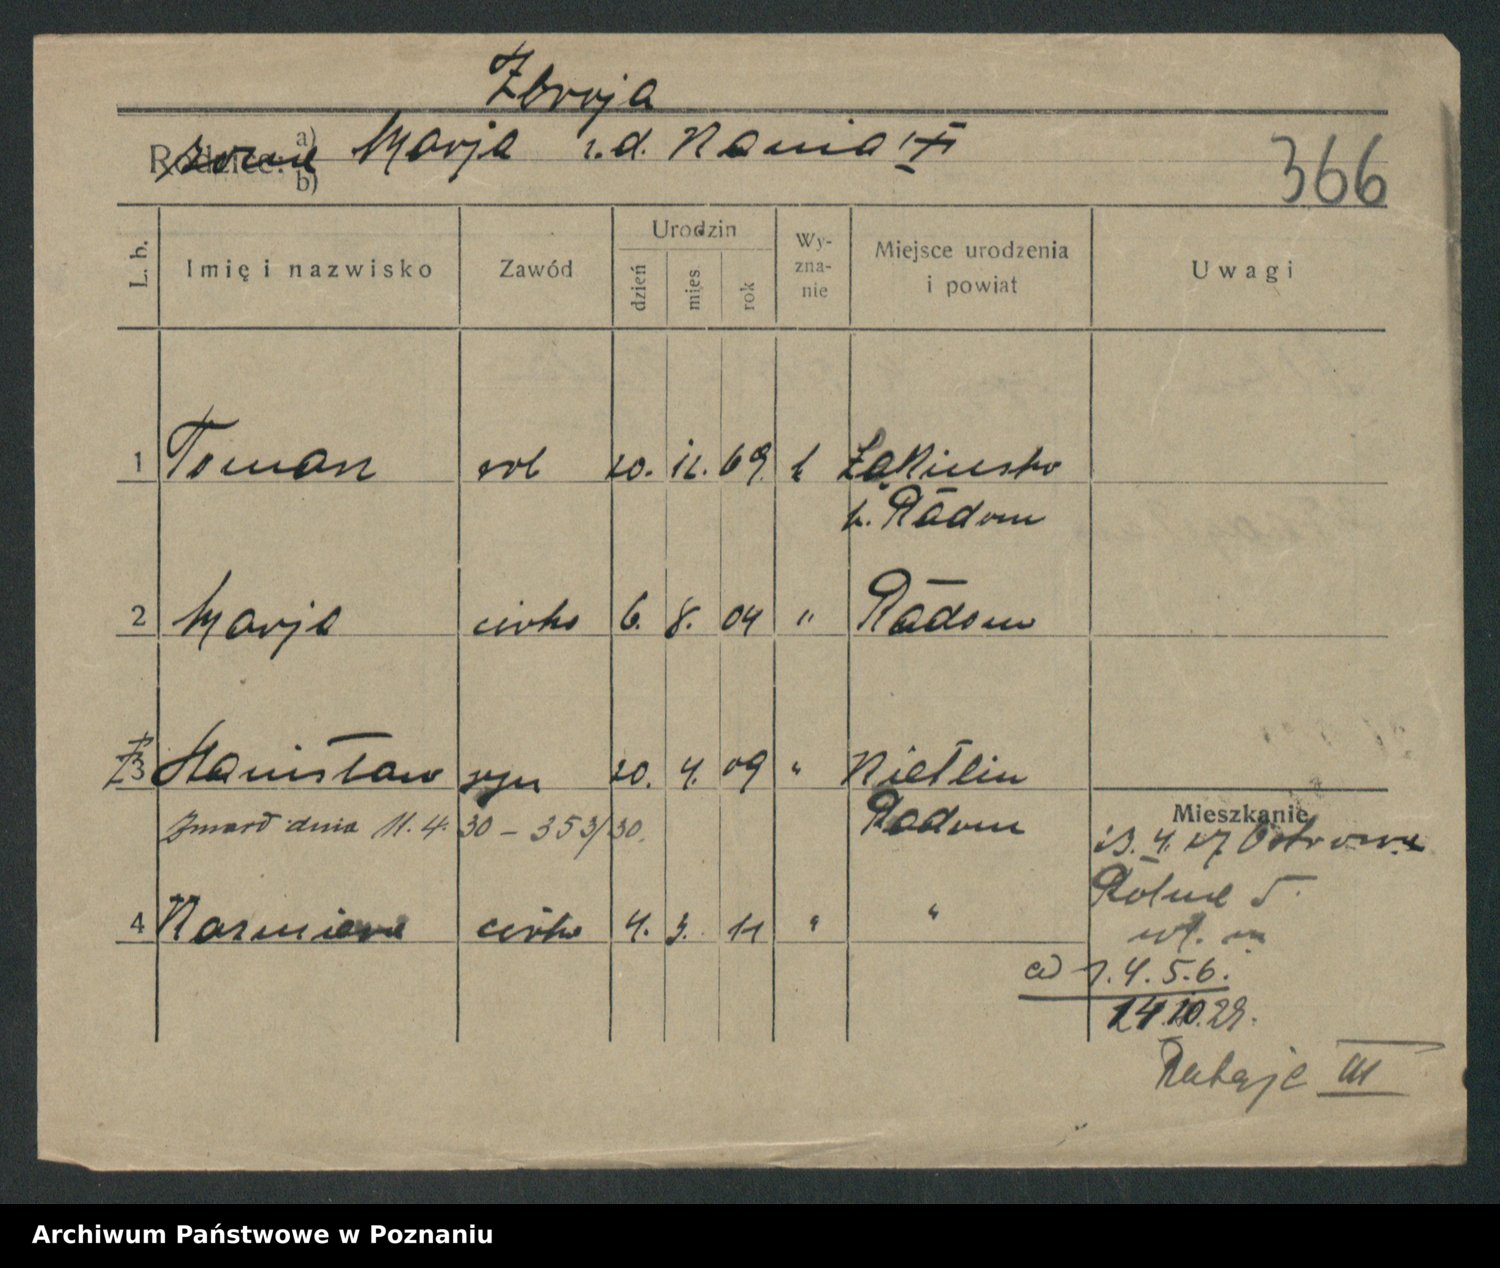 Zbroja
Rodzice: a) Marja r. d. Kania
b)
366
L. b. Imię i nazwisko Zawód Urodzin dzień mies. rok Wy-zna-nie Miejsce urodzenia i powiat Uwagi
1 Roman rob 20. 12. 69. k
p. Radom
2 Marja córka 6. 8. 04 " Radom
3 Stanisław syn 20. 4. 09 " Nietlin
Zmarł dnia 11. 4. 30 – 353/30. Radom
Mieszkanie
23. 4. 27 Ostrowa
Rólne 5.
4 Kazmiera córka 4. 3. 11 " "
wł. m
a) 1. 4. 5. 6.
14.10.29.
Rataje III
Archiwum Państwowe w Poznaniu